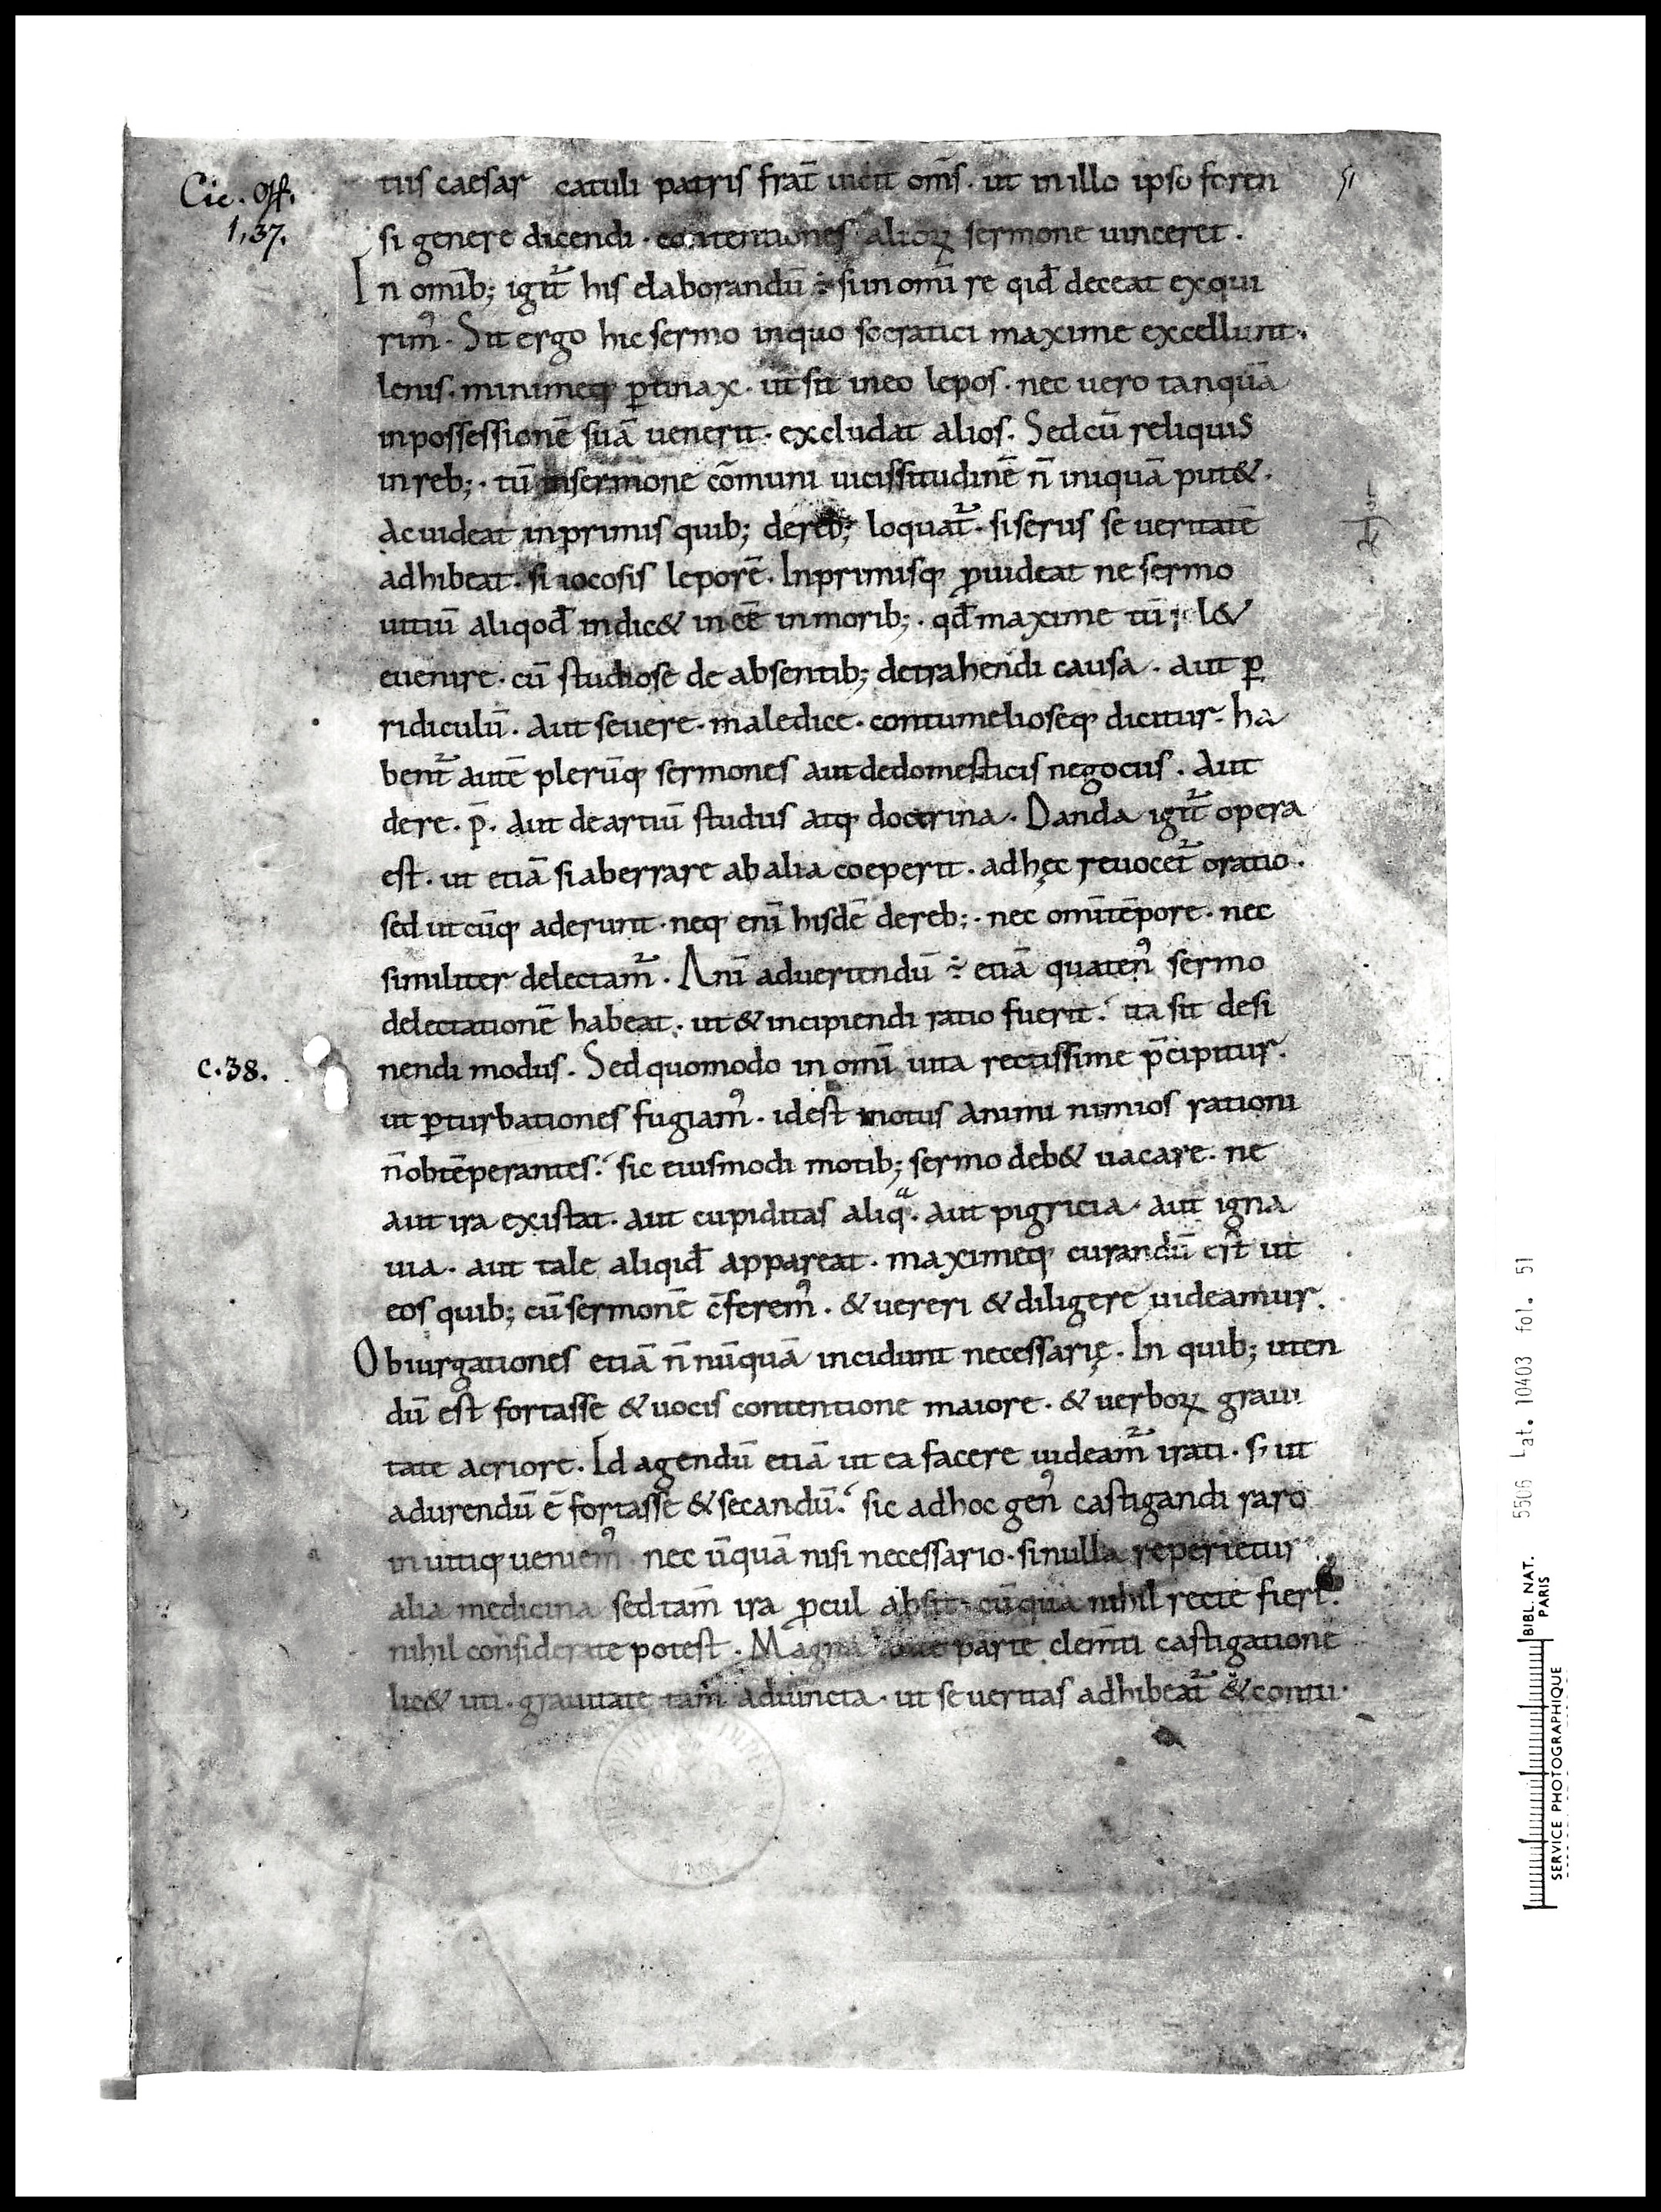 Cic. Off.
1,37.
51
tus caesar catuli patris frat̄ uicit om̄s. ut in illo ipso foren
si genere dicendi. contentiones alioꝝ sermone uinceret.
In omib; igit᷑ his elaborandū ÷ si in om̄i re qid̄ deceat exqui
rim᾽. Sit ergo hic sermo inquo socratici maxime excellunt.
lenis. minimeq; ꝑtinax. ut sit ineo lepos. nec uero tanquā
inpossessionē suā uenerit. excludat alios. Sed cū reliquis
inreb;. tū insermone cōmuni uicissitudinē n̄ iniquā put&.
Ac uideat inprimis quib; dereb; loquat᷑. si seriis seueritatē
adhibeat. si iocosis leporē. Inprimisq; ꝓuideat ne sermo
uitiū aliqod̄ indic& in eē inmorib;. qd̄ maxime tū sol&
euenire. cū studiose de absentib; detrahendi causa. aut ꝑ
ridiculū. aut seuere. maledice. contumelioseq; dicitur. ha
bent᷑ autē plerūq; sermones aut dedomesticis negociis. Aut
dere. p̄. aut deartiū studiis atq; doctrina. Danda igit᷑ opera
est. ut etiā si aberrare ab alia coeperit. adhęc reuocet᷑ oratio.
sed utcūq; aderunt. neq; enī hisdē dereb;. nec om̄i tēpore. nec
similiter delectam᷑. Anī aduertendū ÷ etiā quaten᾽ sermo
delectationē habeat. ut & incipiendi ratio fuerit. ita sit desi
c.38.
nendi modus. Sed quomodo in om̄i uita rectissime p̄cipitur.
ut ꝑturbationes fugiam᾽. idest motus animi nimios rationi
n̄ obtēperantes. sic eiusmodi motib; sermo deb& uacare. ne
aut ira existat. aut cupiditas aliqͣ. aut pigricia. aut igna
uia. aut tale aliqid̄ appareat. maximeq; curandū er̄t ut
eos quib; cū sermonē c̄ferem᾽. & uereri & diligere uideamur.
Obiurgationes etiā n̄ nūquā incidunt necessarię. In quib; uten
dū est fortasse & uocis contentione maiore. & uerboꝝ graui
tate acriore. Id agendū etiā ut ea facere uideam᷑ irati. s; ut
adurendū ē fortasse & secandū. sic adhoc gen᾽ castigandi raro
inuitiq; ueniem᾽. nec ūquā nisi necessario. si nulla reperietur
alia medicina sed tam̄ ira ꝓcul absit. cū qua nihil recte fieri.
nihil considerate potest. Magna parte clem̄ti castigatione
lic& uti. grauitate tam̄ adiuncta. ut seueritas adhibeat᷑ & contu
5506 Lat. 10403 fol. 51
BIBL. NAT.
PARIS
SERVICE PHOTOGRAPHIQUE